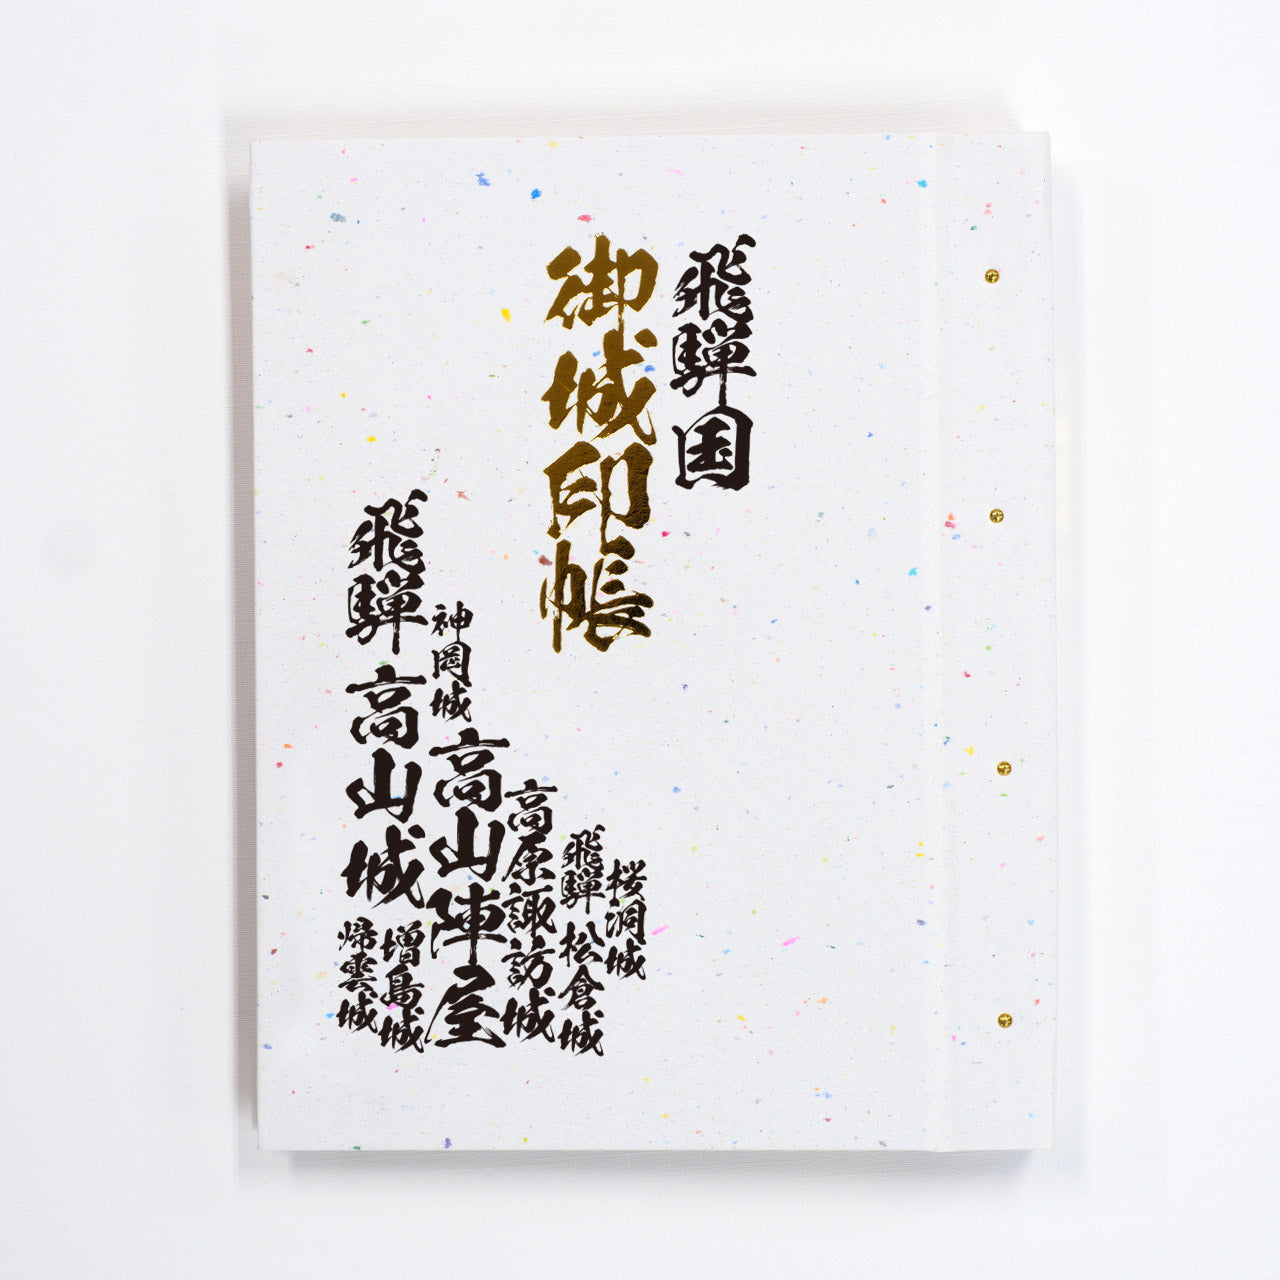 飛騨国
御城印帳
桜洞城
飛騨 松倉城
高原諏訪城
神岡城
高山陣屋
飛騨 高山城
増島城
帰雲城